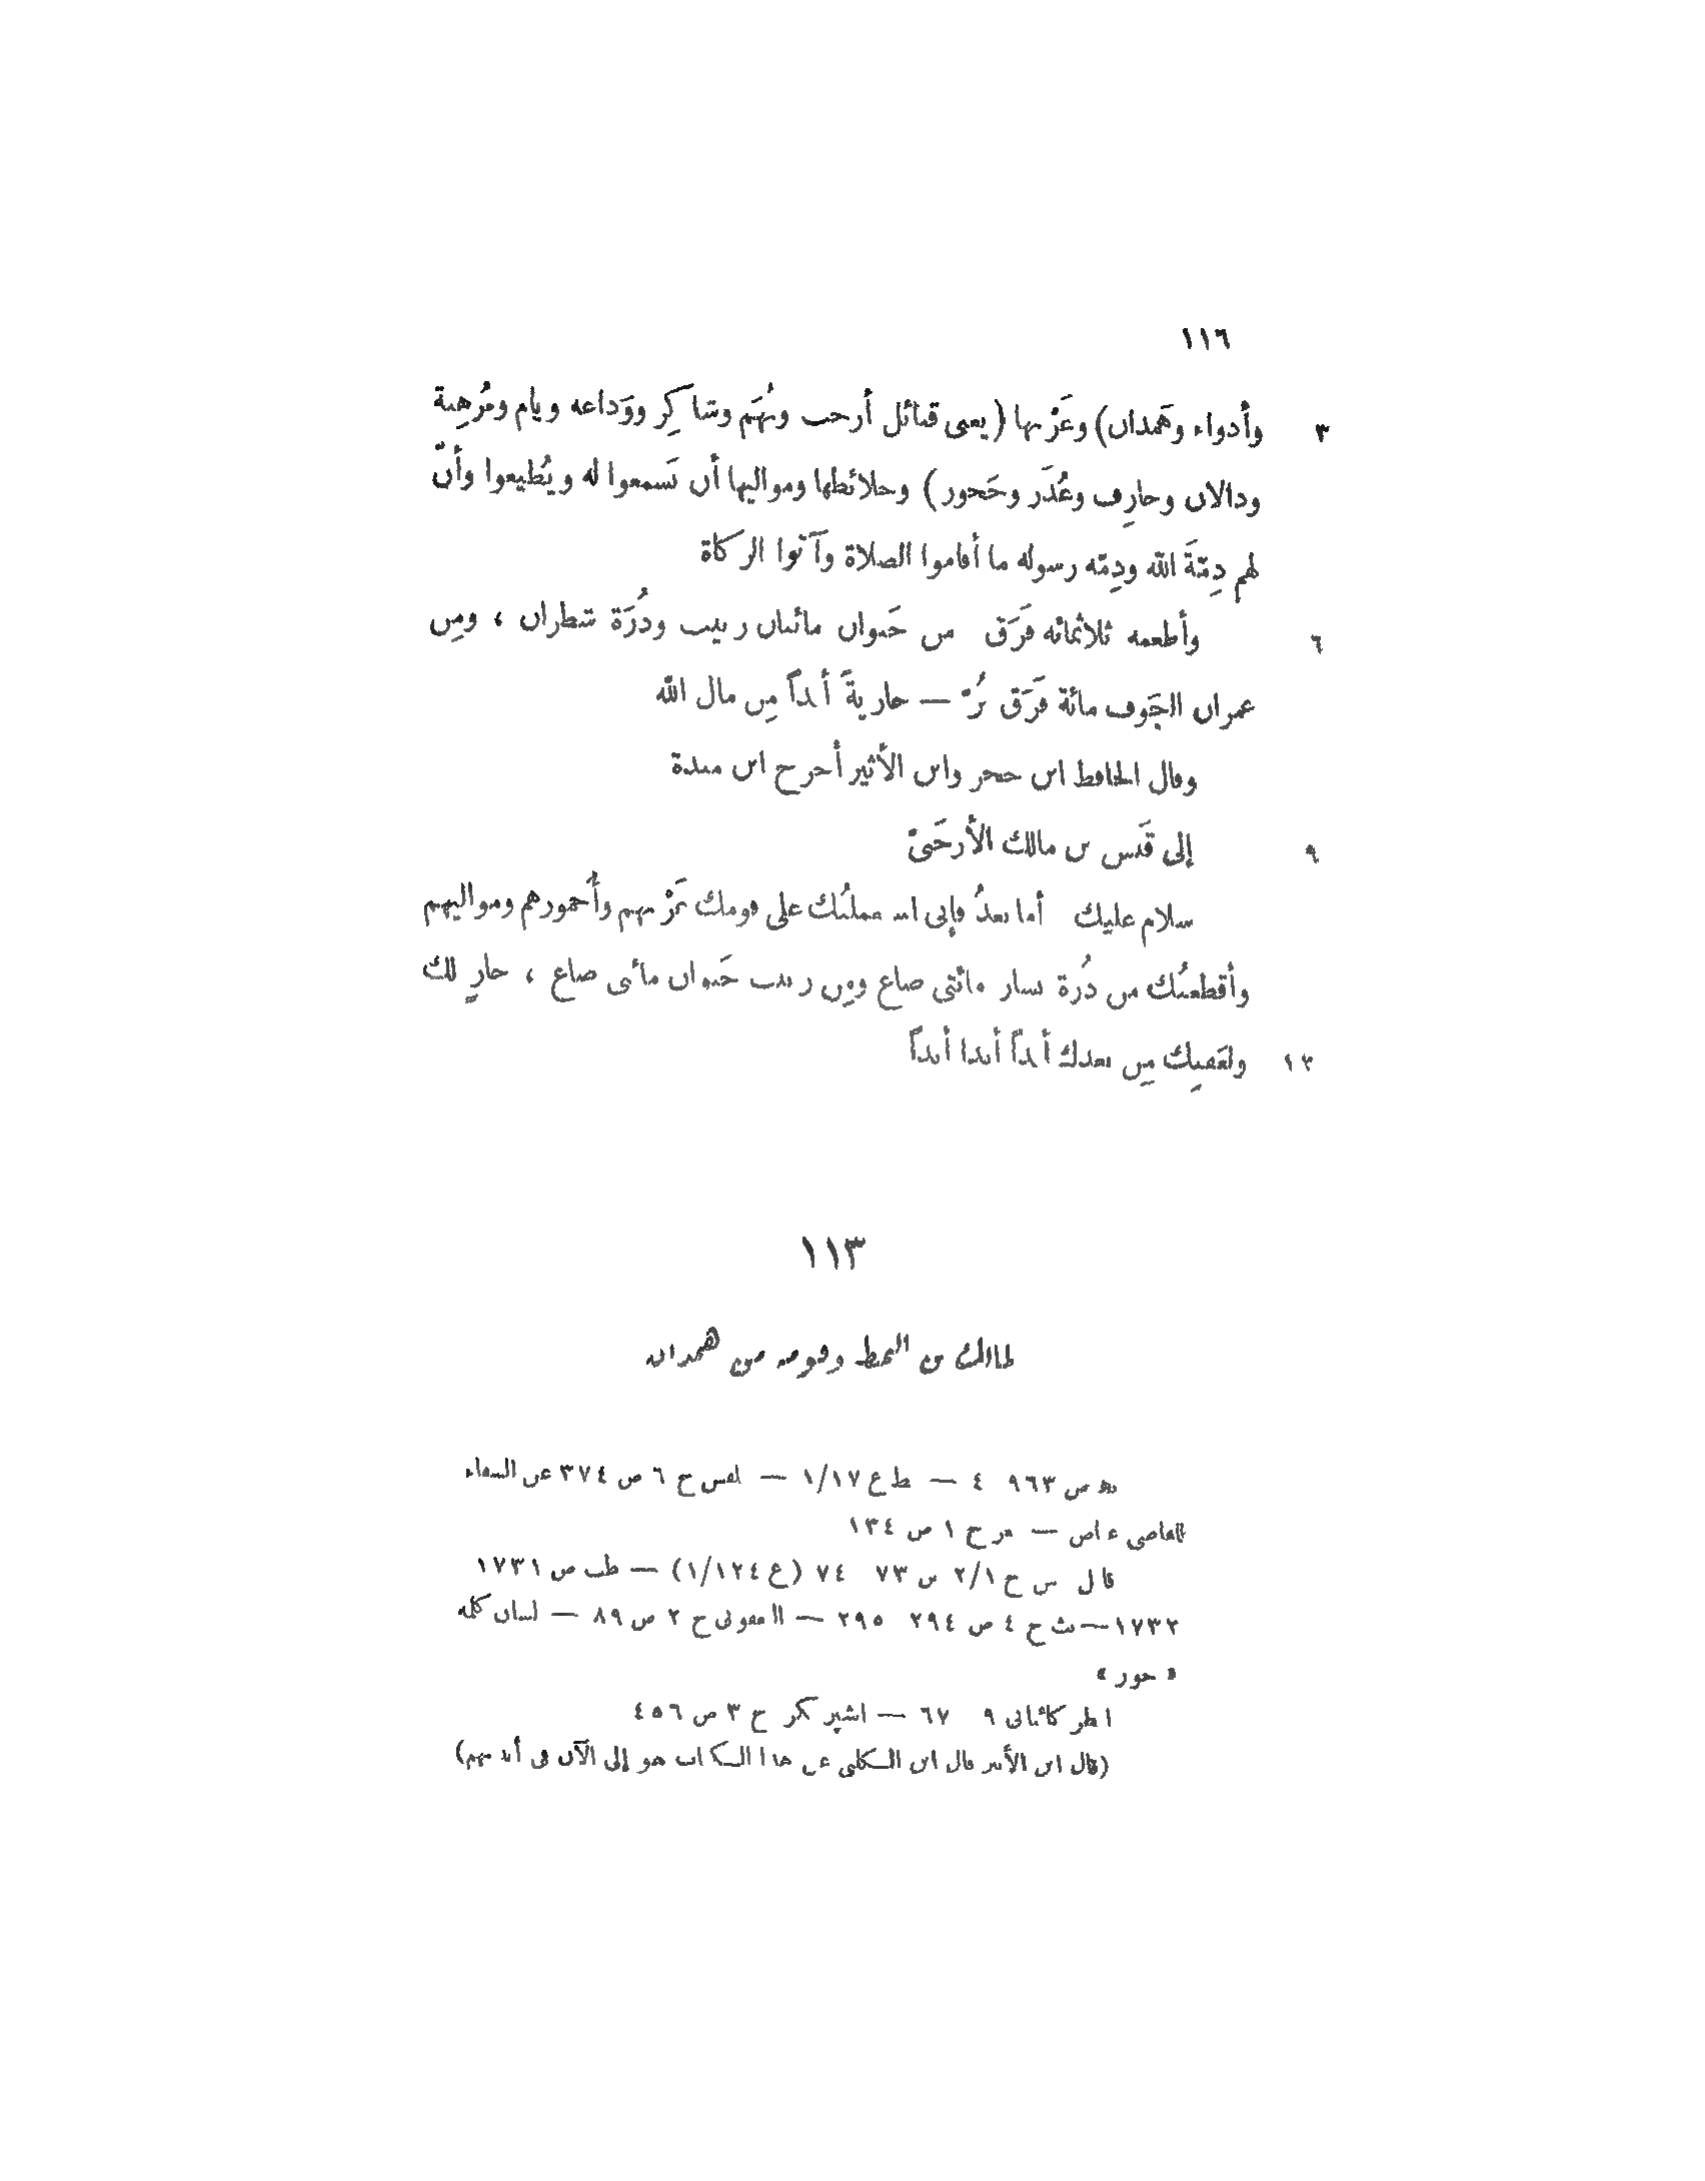 ١١٦
٣ وأدواء وهَمدان) وعَرْبها (يعنى قبائل أرحب ونُهَم وشاكِر ووَداعه ويام ومُرهِبة
ودالان وخارِف وعُذَر وحَجور) وخلائطها ومواليها أن تَسمعوا له ويُطيعوا وأنّ
لهم ذِمّةَ الله وذِمّه رسوله ما أقاموا الصلاة وآتوا الزكاة
٦ وأطعمه ثلاثمائه فَرَق من خَيوان مائتان زبيب وذُرَة شطران ، ومِن
عمران الجَوف مائة فَرَق بُرّ — جاريةً أبداً مِن مال الله
وقال الحافظ ابن حجر وابن الأثير أخرج ابن مندة
٩ إلى قَيس بن مالك الأرحَبىّ
سلام عليك أما بعدُ فإنى استعملتُك على قومك عَرْبهم وأُحمورهم ومواليهم
وأقطعتُك من ذُرة نسار مائتى صاع ومِن زبيب خَيوان مائتى صاع ، جارٍ لك
١٢ ولعَقبِك مِن بعدك أبداً أبدا أبداً
١١٣
لمالك بن النمط وقومه من همدان
به ص ٩٦٣ ٤ — ط ع ١/١٧ — لقس ج ٦ ص ٣٧٤ عن الشفاء
للقاضى عياض — عر ج ١ ص ١٣٤
قابل بس ج ٢/١ ص ٧٣ ٧٤ (ع ١/١٢٤) — طب ص ١٧٣١
١٧٣٢ — بث ج ٤ ص ٢٩٤ ٢٩٥ — اليعقوبى ج ٢ ص ٨٩ — لسان كلمه
« حور »
انظر كائتانى ٩ ٦٧ — اشپر نكر ج ٣ ص ٤٥٦
(قال ابن الأثير قال ابن الكلبى عن هذا الكتاب هو إلى الآن فى أيديهم)